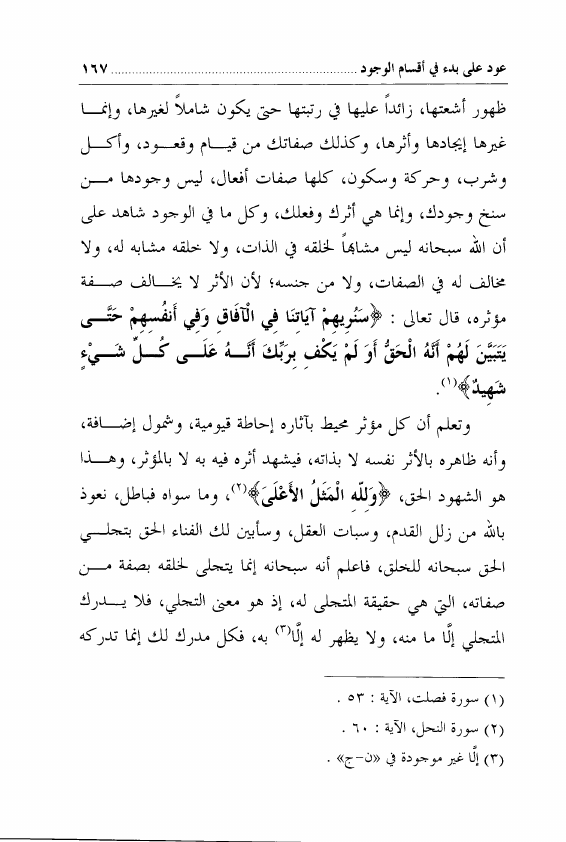 عود على بدء في أقسام الوجود ........................................................................... ١٦٧
ظهور أشعتها، زائداً عليها في رتبتها حتى يكون شاملاً لغيرها، وإنمـــا
غيرها إيجادها وأثرها، وكذلك صفاتك من قيــام وقعــود، وأكــل
وشرب، وحركة وسكون، كلها صفات أفعال، ليس وجودها مـــن
سنخ وجودك، وإنما هي أثرك وفعلك، وكل ما في الوجود شاهد على
أن الله سبحانه ليس مشابهاً لخلقه في الذات، ولا خلقه مشابه له، ولا
مخالف له في الصفات، ولا من جنسه؛ لأن الأثر لا يخــالف صــفة
مؤثره، قال تعالى : ﴿سَنُرِيهِمْ آيَاتِنَا فِي الْآفَاقِ وَفِي أَنفُسِهِمْ حَتَّــى
يَتَبَيَّنَ لَهُمْ أَنَّهُ الْحَقُّ أَوَ لَمْ يَكْفِ بِرَبِّكَ أَنَّــهُ عَلَــى كُــلِّ شَــيْءٍ
شَهِيدٌ﴾(١).
وتعلم أن كل مؤثر محيط بآثاره إحاطة قيومية، وشمول إضــافة،
وأنه ظاهره بالأثر نفسه لا بذاته، فيشهد أثره فيه به لا بالمؤثر، وهــذا
هو الشهود الحق، ﴿وَلِلّهِ الْمَثَلُ الأَعْلَىَ﴾(٢)، وما سواه فباطل، نعوذ
بالله من زلل القدم، وسبات العقل، وسأبين لك الفناء الحق بتجلــي
الحق سبحانه للخلق، فاعلم أنه سبحانه إنما يتجلى لخلقه بصفة مـــن
صفاته، التي هي حقيقة المتجلى له، إذ هو معنى التجلي، فلا يـــدرك
المتجلي إلّا ما منه، ولا يظهر له إلّا(٣) به، فكل مدرك لك إنما تدركه
(١) سورة فصلت، الآية : ٥٣ .
(٢) سورة النحل، الآية : ٦٠ .
(٣) إلّا غير موجودة في «ن-ج» .